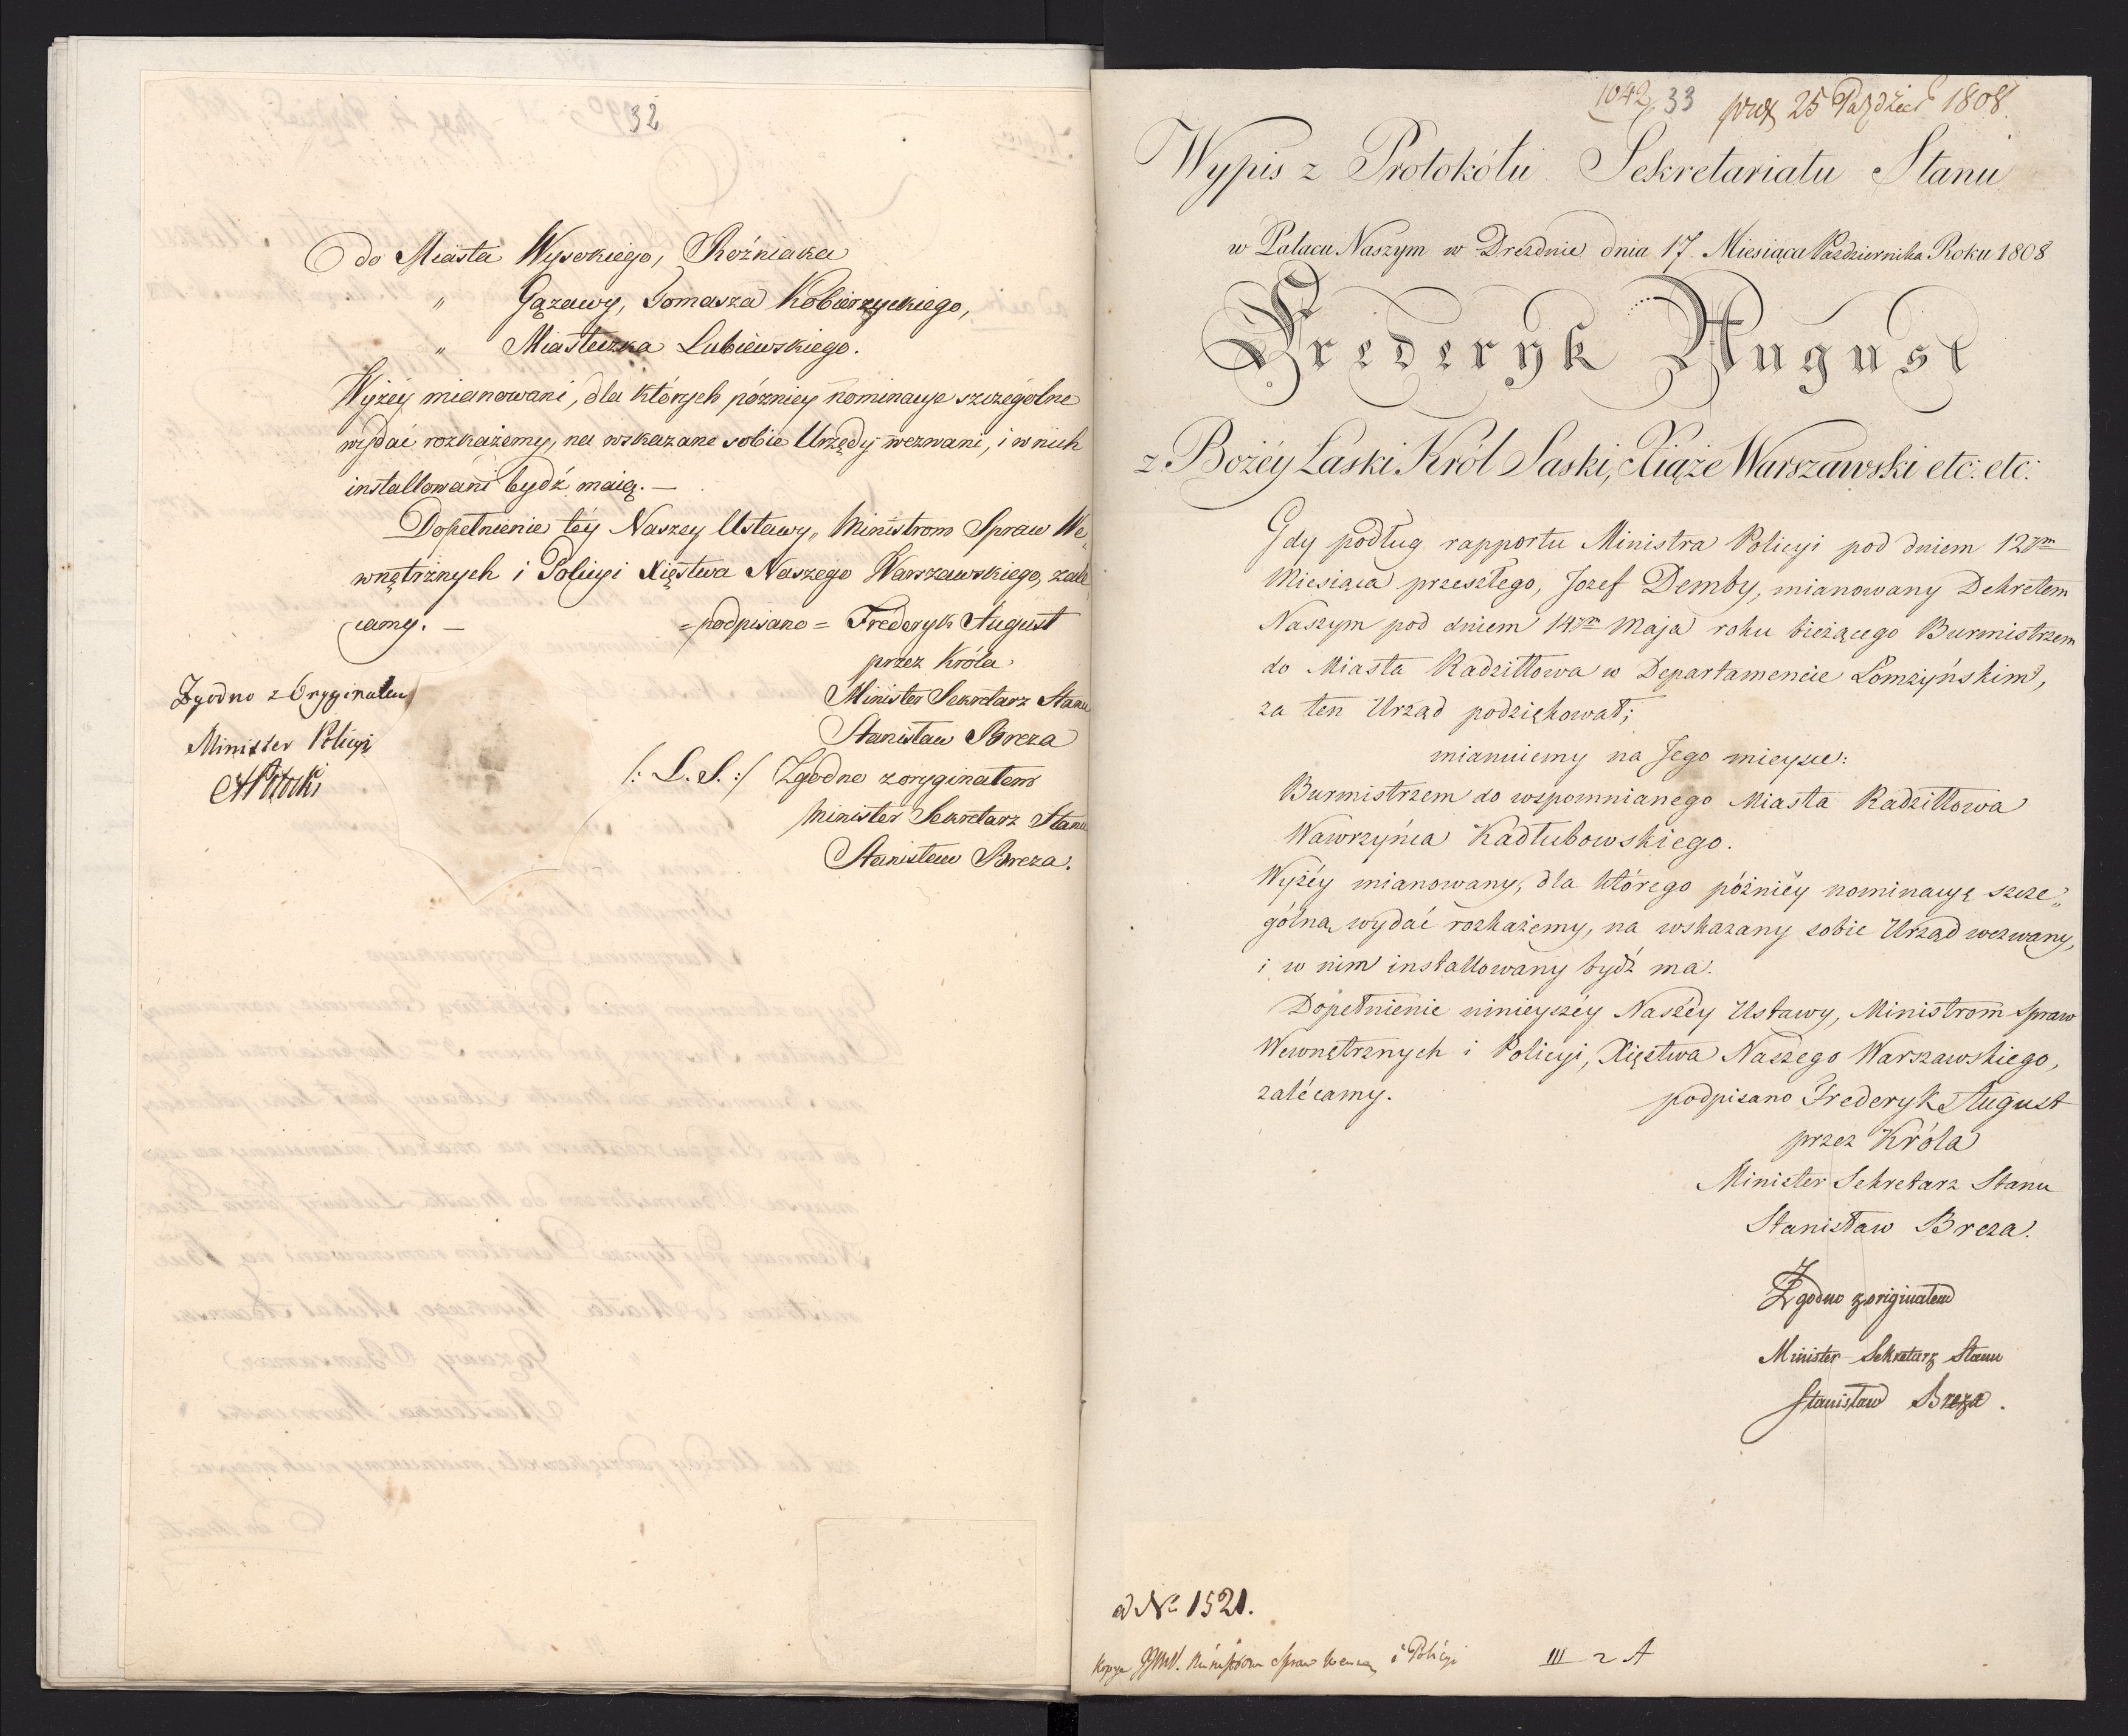 32
do Miasta Wysokiego, Rożniaka
" Gązawy, Tomasza Kobierzyckiego,
" Miasteczka Lubiewskiego.
Wyżéy mianowani, dla których późniey nominacye szczególne
wydać rozkażemy, na wskazane sobie Urzędy wezwani, i w nich
installowani bydź maią. —
Dopełnienie téy Naszey Ustawy, Ministrom Spraw We„
wnętrznych i Policyi Xięstwa Naszego Warszawskiego, zale
camy. — = podpisano = Frederyk August
przez Króla
Minister Sekretarz Stanu
Stanisław Breza
/: L. S. :/ Zgodno z oryginałem
Minister Sekretarz Stanu
Stanisław Breza.
Zgodno z Oryginałem
Minister Policyi
A Potocki
1042. 33 25 Paździer 1808.
Wypis z Protokółu Sekretariatu Stanu
w Pałacu Naszym w Dreźdnie dnia 17. Miesiąca Października Roku 1808
Frederyk August
z Bożéy Łaski Król Saski, Xiąże Warszawski etc: etc:
Gdy podług rapportu Ministra Policyi pod dniem 12ym
Miesiąca przeszłego, Jozef Demby, mianowany Dekretem
Naszym pod dniem 14ym Maja roku bieżącego Burmistrzem
do Miasta Radziłłowa w Departamencie Łomżyńskim,
za ten Urząd podziękował;
mianuiemy na Jego mieysce:
Burmistrzem do wspomnianego Miasta Radziłłowa
Wawrzyńca Kadłubowskiego.
Wyżéy mianowany, dla którego późniéy nominacyę szcze„
gólną wydać rozkażemy, na wskazany sobie Urząd wezwany,
i w nim installowany bydź ma.
Dopełnienie ninieyszéy Naszéy Ustawy, Ministrom Spraw
Wewnętrznych i Policyi, Xięstwa Naszego Warszawskiego,
zalécamy. podpisano Frederyk August
przez Króla
Minister Sekretarz Stanu
Stanisław Breza.
Zgodno z originałem
Minister Sekretarz Stanu
Stanisław Breza.
ad No 1521.
Kopya Ministrom Spraw i Policyi III 2 A